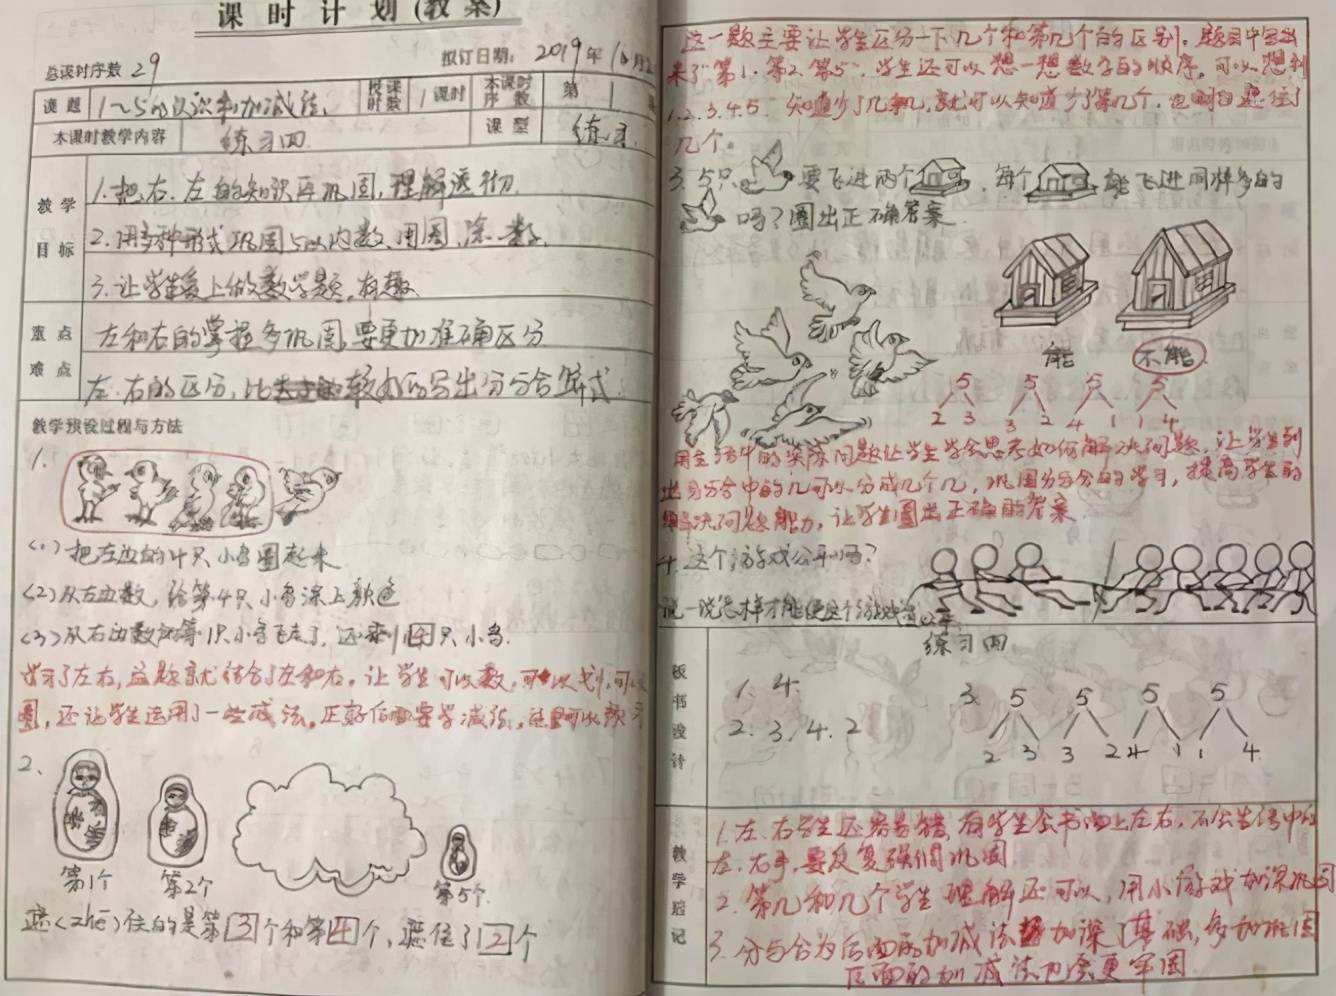 课时计划(教案)
总课时序数 29
拟订日期: 2019年10月2
课题 1~5的认识和加减法. 授课时数 1课时 本课时序数 第1
本课时教学内容 练习四 课型 练习.
教学目标
1.把右、左的知识再巩固,理解透彻.
2.用多种形式巩固5以内数,用圈、涂、数.
3.让学生爱上做数学题,有趣
重点 左和右的掌握多巩固,要更加准确区分
难点 左、右的区分,比较大小写出分与合算式.
教学预设过程与方法
1.
(1)把左边的4只小鸟圈起来
(2)从左边数,给第4只小鸟涂上颜色
(3)从右边数第1只小鸟飞走了,还剩4只小鸟.
学习了左右,这题就结合了左和右。让学生可以数,可以划,可以
圈,还让学生运用了一些减法。正好后面要学减法,这里可以预习
2、
第1个 第2个 第5个
遮(zhē)住的是第3个和第4个,遮住了2个
这一题主要让学生区分一下几个和第几个的区别。题目中写出
来了第1、第2、第5,学生还可以想一想数字的顺序,可以想到
1.2.3.4.5. 知道少了几和几,就可以知道少了第几个,也明白遮住了
几个。
3. 5只 要飞进两个 ,每个 能飞进同样多的
吗?圈出正确答案
能 不能
5 5 5 5
2 3 3 2 4 1 1 4
用生活中的实际问题让学生学会思考如何解决问题,让学生列
出分与合中的几可以分成几个几,巩固分与合的学习,提高学生的
解决问题能力,让学生圈出正确的答案
4.这个游戏公平吗?
说一说怎样才能使这个游戏公平.
板书设计
练习四
1. 4.
2. 3. 4. 2
3. 5 5 5 5
2 3 3 2 4 1 1 4.
教学后记
1.左、右学生还容易错,有学生会书面上左右,不会生活中的
左、右手,要反复强调巩固.
2.第几和几个学生理解还可以,用小游戏加深巩固
3.分与合为后面的加减法加深了基础,多加巩固
后面的加减法也会更牢固.